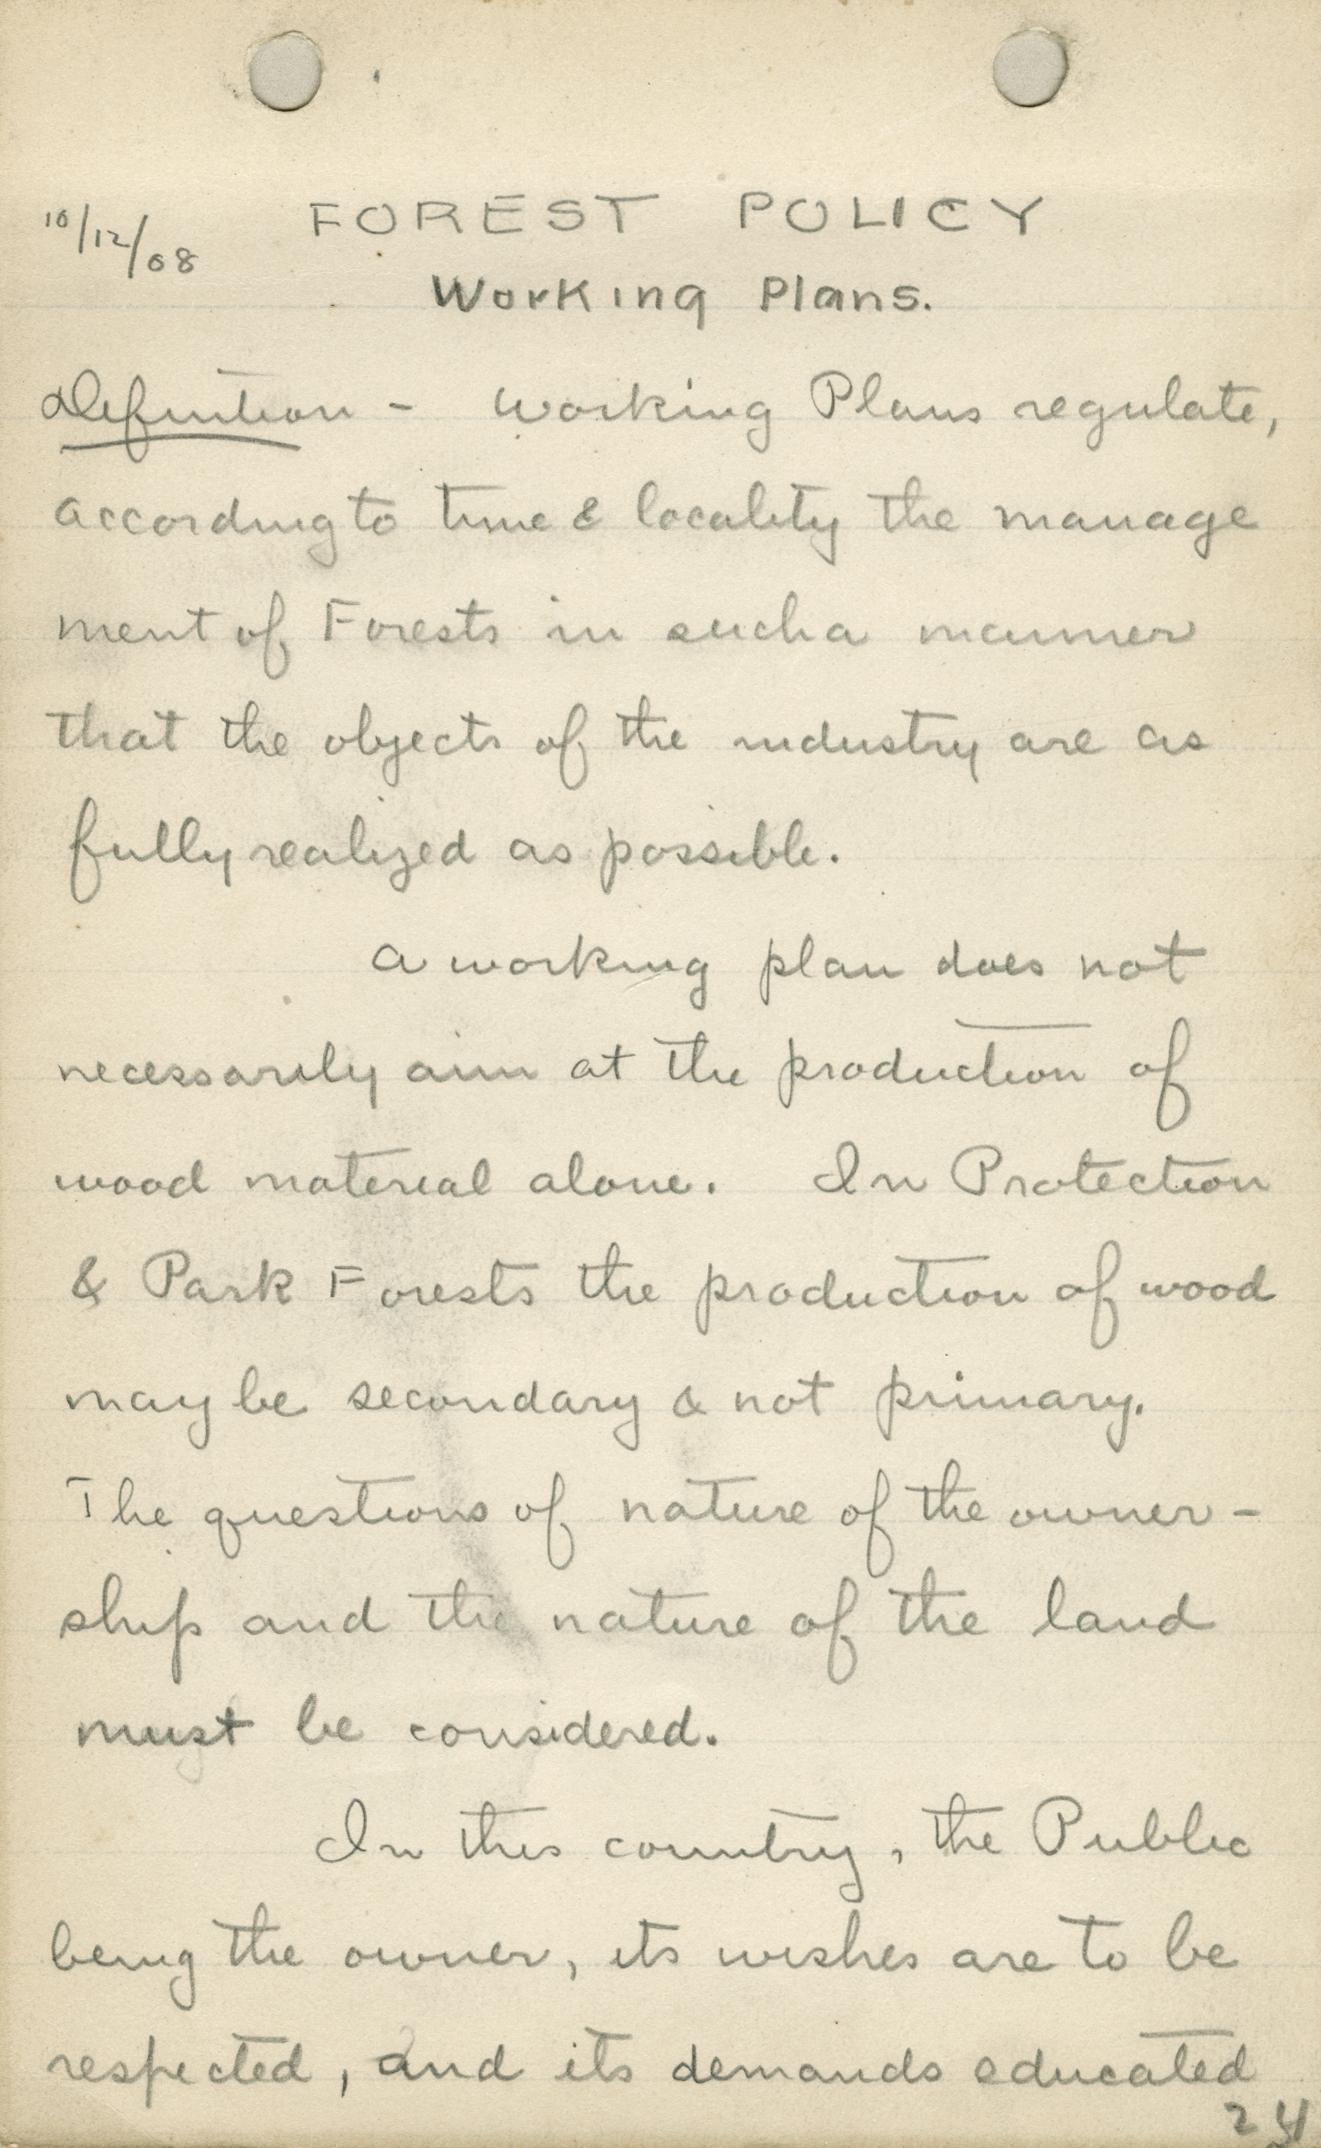 10/12/08 FOREST POLICY
Working Plans.
Definition - Working Plans regulate,
according to time & locality the manage
ment of Forests in such a manner
that the objects of the industry are as
fully realized as possible.
A working plan does not
necessarily aim at the production of
wood material alone. In Protection
& Park Forests the production of wood
may be secondary & not primary.
The questions of nature of the owner-
ship and the nature of the land
must be considered.
In this country, the Public
being the owner, its wishes are to be
respected, and its demands educated
24